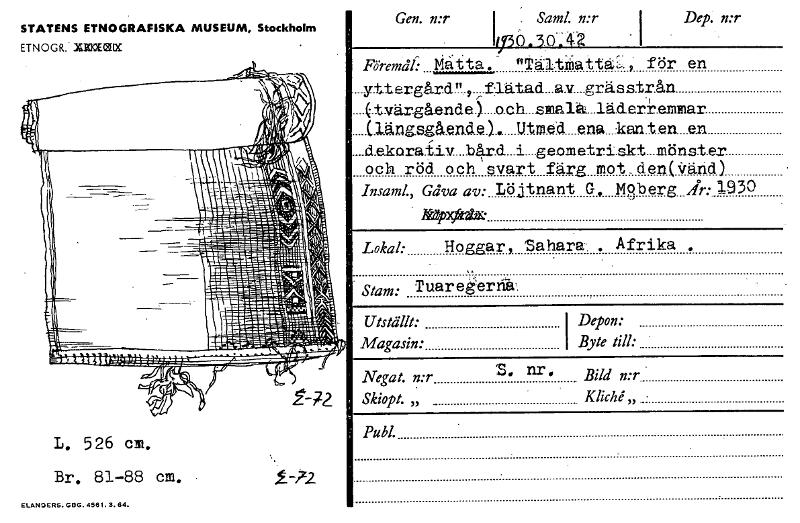 STATENS ETNOGRAFISKA MUSEUM, Stockholm
ETNOGR.
Σ-72
L. 526 cm.
Br. 81-88 cm.
Σ-72
ELANDERS. GBG. 4561. 3. 64.
Gen. n:r
Saml. n:r
Dep. n:r
1930.30.42
Föremål: Matta. "Tältmatta, för en
yttergård", flätad av grässtrån
(tvärgående) och smala läderremmar
(längsgående). Utmed ena kanten en
dekorativ bård i geometriskt mönster
och röd och svart färg mot den(vänd)
Insaml., Gåva av: Löjtnant G. Moberg År: 1930
Köp från:
Lokal: Hoggar, Sahara . Afrika .
Stam: Tuaregerna
Utställt:
Depon:
Magasin:
Byte till:
Negat. n:r S. nr.
Bild n:r
Skiopt. „
Kliché „
Publ.